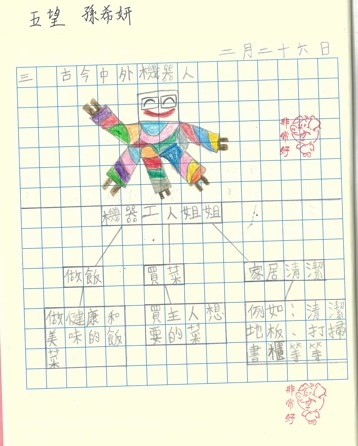 五望 孫希妍
二月二十六日
三 古今中外機器人
非常好
機器工人姐姐
做飯 買菜 家居清潔
做健康和
美味的飯
菜
買主人想
要的菜
例如：清潔
地板、打掃
書櫃等等
非常好